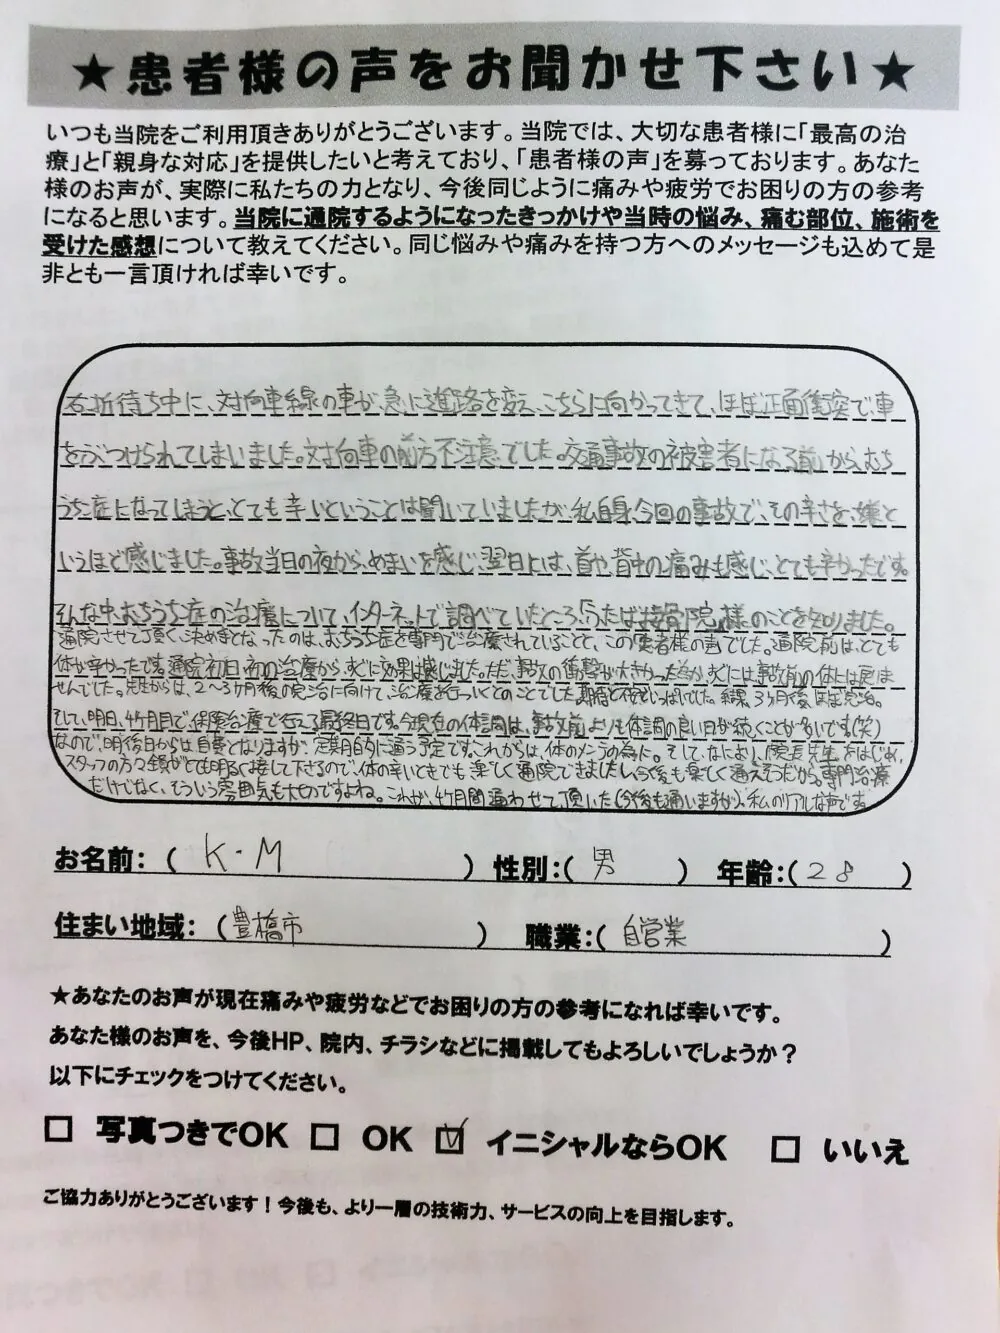 ★患者様の声をお聞かせ下さい★
いつも当院をご利用頂きありがとうございます。当院では、大切な患者様に「最高の治
療」と「親身な対応」を提供したいと考えており、「患者様の声」を募っております。あなた
様のお声が、実際に私たちの力となり、今後同じように痛みや疲労でお困りの方の参考
になると思います。当院に通院するようになったきっかけや当時の悩み、痛む部位、施術を
受けた感想について教えてください。同じ悩みや痛みを持つ方へのメッセージも込めて是
非とも一言頂ければ幸いです。
右折待ち中に、対向車線の車が、急に進路を変え、こちらに向かってきて、ほぼ正面衝突で、車
をぶつけられてしまいました。対向車の前方不注意でした。交通事故の被害者になる前から、むち
うち症になってしまうと、とても辛いということは聞いていましたが、私自身、今回の事故で、その辛さを、嫌と
いうほど感じました。事故当日の夜から、めまいを感じ、翌日には、首や、背中の痛みも感じ、とても辛かったです。
そんな中、むちうち症の治療について、インターネットで調べていたところ、「ふたば接骨院」様のことを知りました。
通院させて頂く、決め手となったのは、むちうち症を専門で治療されていることと、この患者様の声でした。通院前は、とても
体が辛かったです。通院初日、初の治療から、すぐに効果は感じました。ただ、事故の衝撃が大きかった為か、すぐには事故前の体には戻りま
せんでした。先生からは、2〜3ヶ月後の完治に向けて、治療を行っていくとのことでした。期待と不安でいっぱいでした。結果、3ヶ月後、ほぼ完治。
そして、明日、4ヶ月目で、保険治療で行える最終日です。今現在の体調は、事故前よりも体調の良い日が続くことが多いです(笑)
なので、明後日からは自費となりますが、定期的に通う予定です。これからは、体のメンテの為に。そして、なにより、院長先生をはじめ、
スタッフの方々全員がとても明るく接して下さるので、体の辛いときでも楽しく通院できましたし、今後も楽しく通えそうだから。専門治療
だけでなく、そういう雰囲気も大切ですよね。これが、4ヶ月間通わせて頂いた(今後も通いますが)、私のリアルな声です。
お名前:( K・M ) 性別:( 男 ) 年齢:( 28 )
住まい地域:( 豊橋市 ) 職業:( 自営業 )
★あなたのお声が現在痛みや疲労などでお困りの方の参考になれば幸いです。
あなた様のお声を、今後HP、院内、チラシなどに掲載してもよろしいでしょうか？
以下にチェックをつけてください。
□ 写真つきでOK □ OK ☑ イニシャルならOK □ いいえ
ご協力ありがとうございます！今後も、より一層の技術力、サービスの向上を目指します。